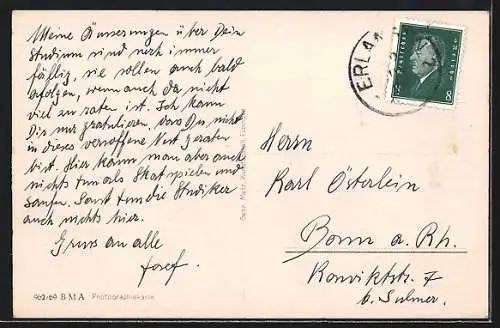 Meine Äusserungen über Dein
Studium sind noch immer
fällig, sie sollen auch bald
erfolgen, wenn auch da nicht
viel zu raten ist. Ich kann
Dir nur gratulieren, dass Du nicht
in dieses versoffene Nest geraten
bist. Hier kann man aber auch
nichts tun als Skat spielen und
saufen. Sonst tun die Studiker
auch nichts hier.
Gruss an alle
Josef.
902/69 B M A Photographiekarte
Gebr. Metz,
ERLA
8 8
Herrn
Karl Österlein
Bonn a. Rh.
Konviktstr. 7
b. Sulmer.